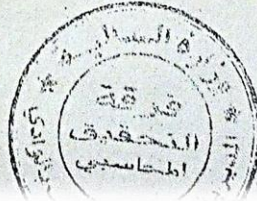 وزارة المالية
فرقة
التحقيق
المحاسبي